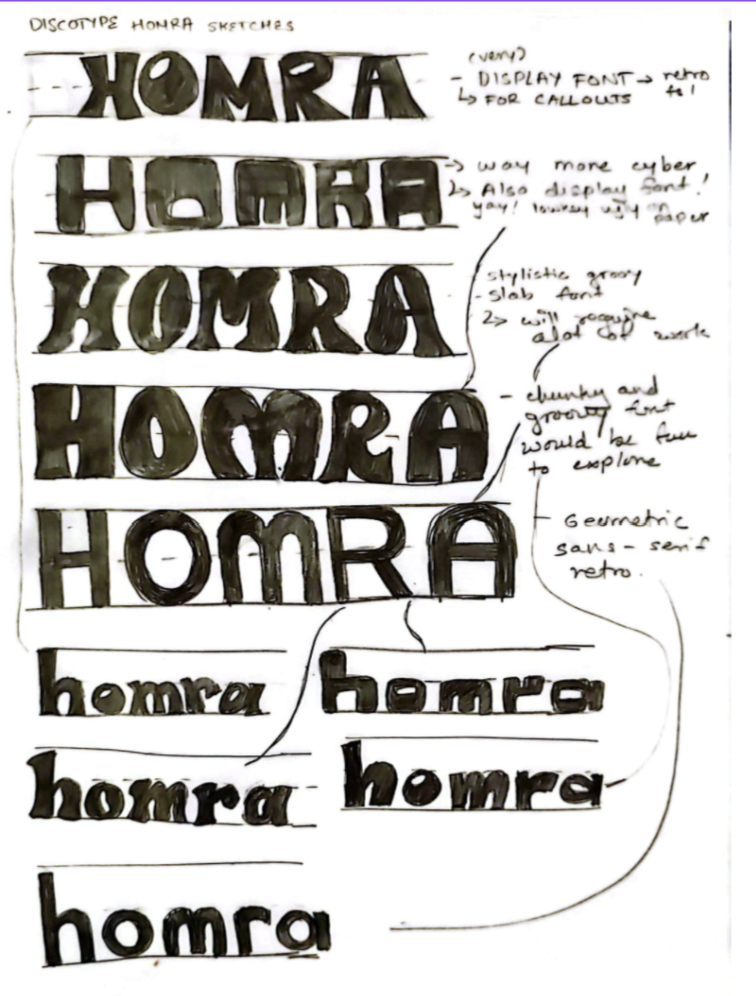 DISCOTYPE HOMRA SKETCHES
HOMRA
(very)
- DISPLAY FONT → retro
↳ FOR CALLOUTS
HOMRA
→ way more cyber
↳ Also display font!
yay! lowkey ugly on
paper
HOMRA
stylistic groovy
- slab font
↳ will require
alot of work
HOMRA
- chunky and
groovy font
would be fun
to explore
HOMRA
- Geometric
sans-serif
retro.
homra
homra
homra
homra
homra